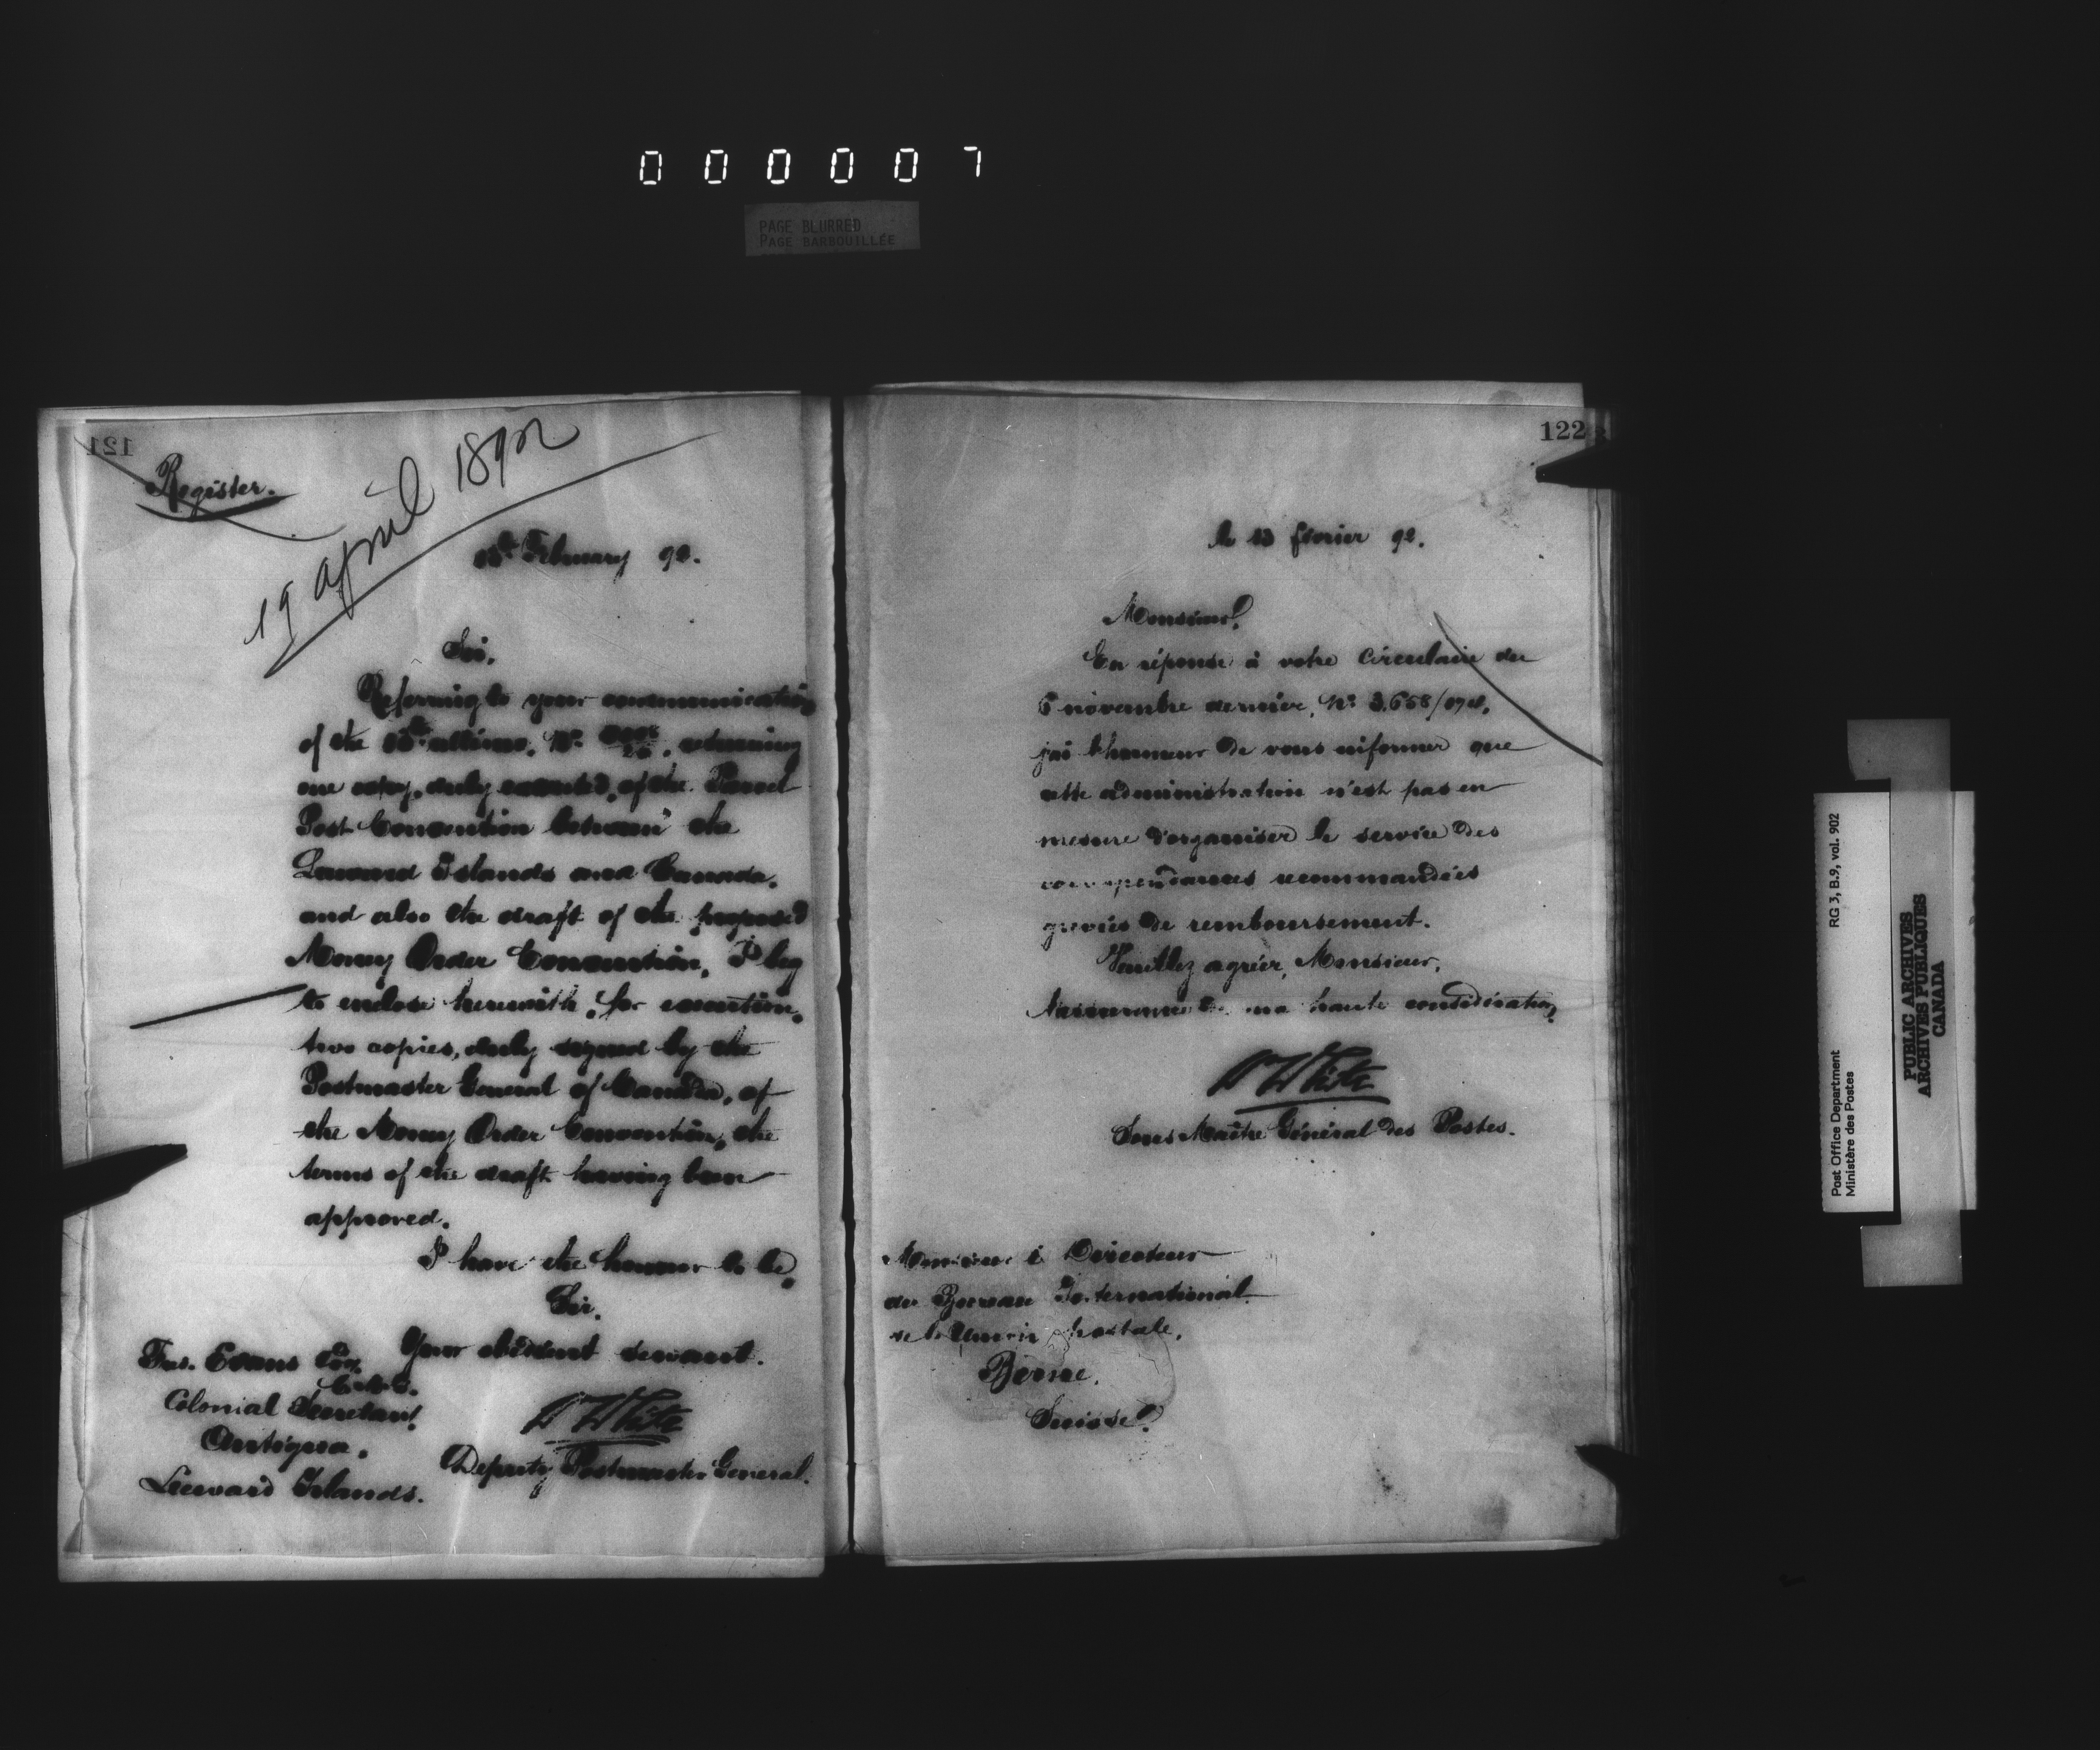 000007
PAGE BLURRED
PAGE BARBOUILLÉE
121
Register.
19 april 1892
February 92.
Sir,
Referring to your communication
of the ultimo, No. returning
one copy, duly executed, of the Parcel
Post Convention between the
Leeward Islands and Canada,
and also the draft of the proposed
Money Order Convention, I beg
to enclose herewith, for execution,
two copies, duly signed by the
Postmaster General of Canada, of
the Money Order Convention, the
terms of the draft having been
approved.
I have the honour to be,
Sir,
Your obedient servant.
Evans Esq.
C.M.G.
Colonial Secretary
Antigua,
Leeward Islands.
White
Deputy Postmaster General.
122
le 13 février 92.
Monsieur,
En réponse à votre circulaire du
5 novembre dernier, No. 3.658/
j'ai l'honneur de vous informer que
cette administration n'est pas en
mesure d'organiser le service des
correspondances recommandées
grevées de remboursement.
Veuillez agréer, Monsieur,
l'assurance de ma haute considération,
White
Sous Maître Général des Postes.
Monsieur le Directeur
du Bureau International
de l'Union postale,
Berne,
Suisse.
Post Office Department RG 3, B.9, vol. 902
Ministère des Postes
PUBLIC ARCHIVES
ARCHIVES PUBLIQUES
CANADA